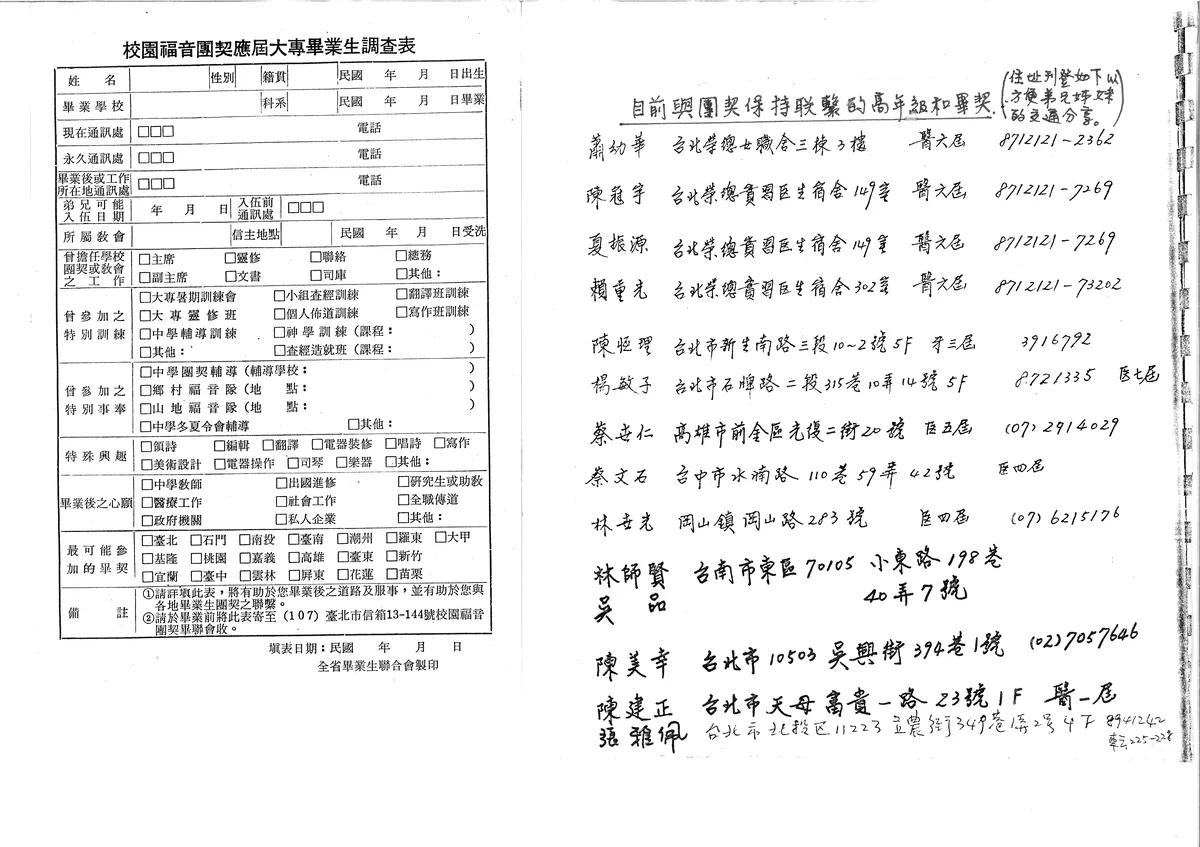 校園福音團契應屆大專畢業生調查表
姓名 性別 籍貫 民國 年 月 日出生
畢業學校 科系 民國 年 月 日畢業
現在通訊處 □□□ 電話
永久通訊處 □□□ 電話
畢業後或工作所在地通訊處 □□□ 電話
弟兄可能入伍日期 年 月 日 入伍前通訊處 □□□
所屬教會 信主地點 民國 年 月 日受洗
曾擔任學校團契或教會之工作
□主席 □靈修 □聯絡 □總務
□副主席 □文書 □司庫 □其他：
曾參加之特別訓練
□大專暑期訓練會 □小組查經訓練 □翻譯班訓練
□大專靈修班 □個人佈道訓練 □寫作班訓練
□中學輔導訓練 □神學訓練（課程： ）
□其他： □查經造就班（課程： ）
曾參加之特別事奉
□中學團契輔導（輔導學校： ）
□鄉村福音隊（地 點： ）
□山地福音隊（地 點： ）
□中學冬夏令會輔導 □其他：
特殊興趣
□領詩 □編輯 □翻譯 □電器裝修 □唱詩 □寫作
□美術設計 □電器操作 □司琴 □樂器 □其他：
畢業後之心願
□中學教師 □出國進修 □研究生或助教
□醫療工作 □社會工作 □全職傳道
□政府機關 □私人企業 □其他：
最可能參加的畢契
□臺北 □石門 □南投 □臺南 □潮州 □羅東 □大甲
□基隆 □桃園 □嘉義 □高雄 □臺東 □新竹
□宜蘭 □臺中 □雲林 □屏東 □花蓮 □苗栗
備註
①請詳填此表，將有助於您畢業後之道路及服事，並有助於您與
各地畢業生團契之聯繫。
②請於畢業前將此表寄至（107）臺北市信箱13-144號校園福音
團契畢聯會收。
填表日期：民國 年 月 日
全省畢業生聯合會製印
目前與團契保持联繫的高年級和畢契
（住址刊登如下以
方便弟兄姊妹
的交通分享。）
蕭幼華 台北榮總女職舍三棟3樓 醫六屆 8712121-2362
陳冠宇 台北榮總實習医生宿舍149室 醫六屆 8712121-7269
夏振源 台北榮總實習医生宿舍149室 醫六屆 8712121-7269
賴重光 台北榮總實習医生宿舍302室 醫六屆 8712121-73202
陳恒理 台北市新生南路三段10~2號5F 牙三屆 3916792
楊敏子 台北市石牌路二段315巷10弄14號5F 8721335 医七屆
蔡世仁 高雄市前金區光復二街20號 医五屆 (07)2914029
蔡文石 台中市水湳路110巷59弄42號 医四屆
林世光 岡山鎮岡山路283號 医四屆 (07)6215176
林師賢 台南市東區70105 小東路198巷
吳品 40弄7號
陳美幸 台北市10503 吳興街394巷1號 (02)7057646
陳建正 台北市天母富貴一路23號1F 醫一屆
張雅佩 台北市北投区11223 立農街349巷 2号4F 8941242
轉225-228